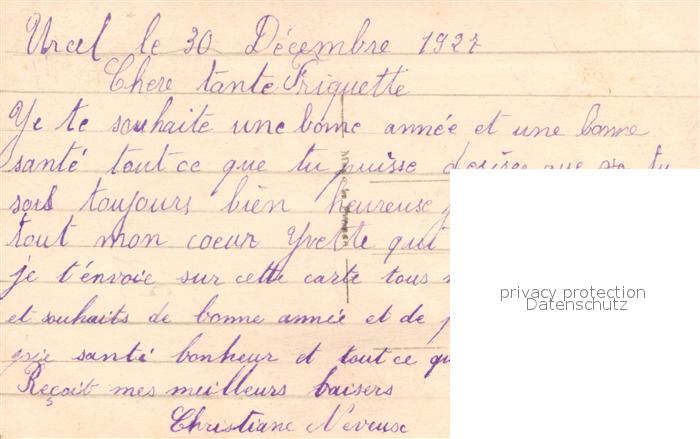 Urcel le 30 Décembre 1927
Chere tante Friquette
Je te souhaite une bonne année et une bonne
santé tout ce que tu puisse desirer que tu
sois toujours bien heureuse
tout mon coeur Yvette qui
je t'envoie sur cette carte tous
et souhaits de bonne année et de
santé bonheur et tout ce qu
Reçoit mes meilleurs baisers
Christiane Neveuse
privacy protection
Datenschutz